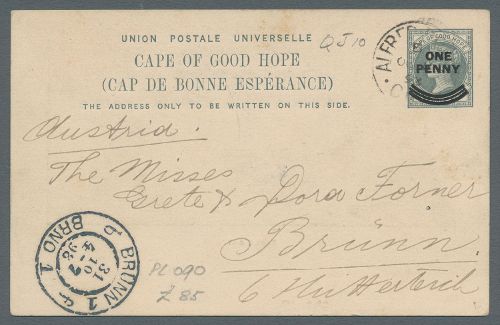 UNION POSTALE UNIVERSELLE
CAPE OF GOOD HOPE
(CAP DE BONNE ESPÉRANCE)
THE ADDRESS ONLY TO BE WRITTEN ON THIS SIDE.
QJ10
ALFRED
CAPE OF GOOD HOPE
ONE
PENNY
Austria.
The Misses
Grete & Dora Forner
Brünn.
BRÜNN 1
BRNO 1
31
10
98
PL090
Z 85